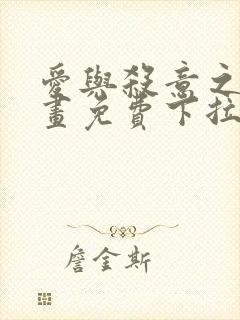 愛與殺意之
畫免費下拉
詹金斯